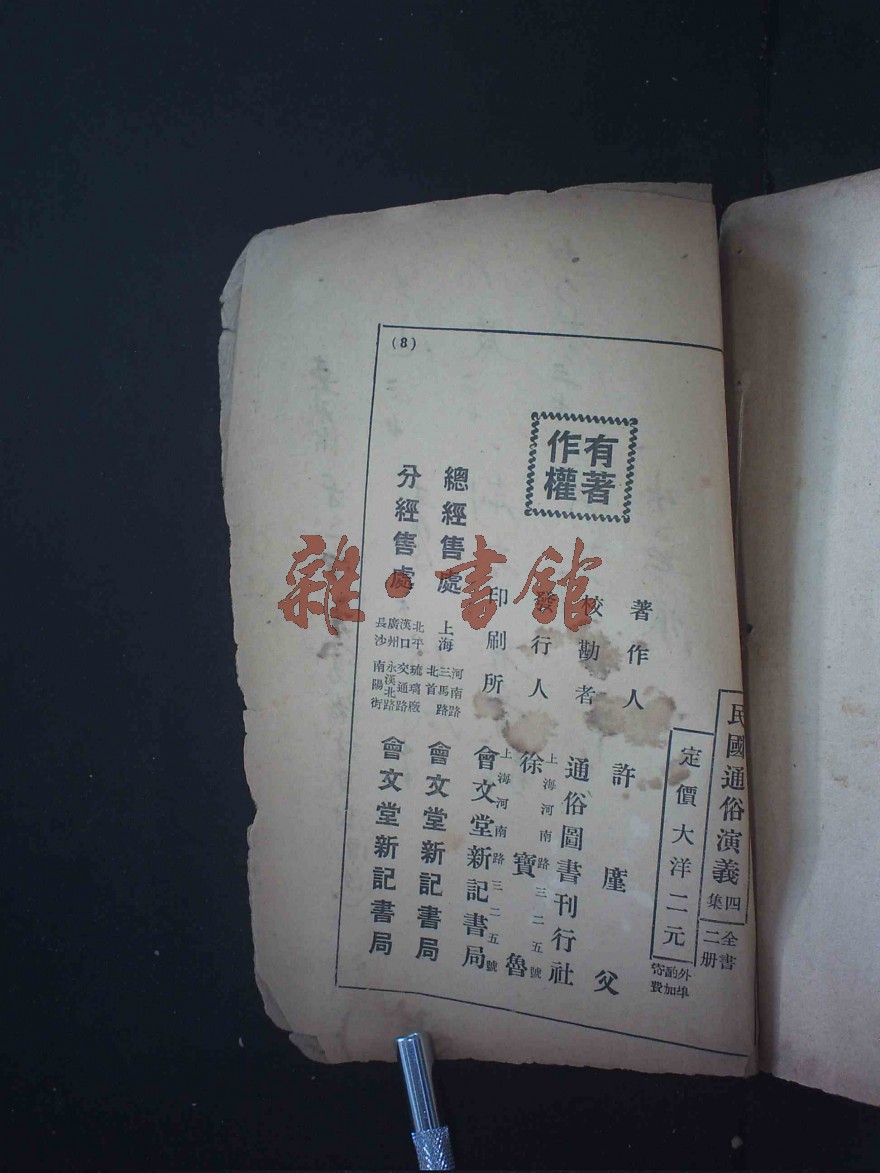 (8)
民國通俗演義四集
全書二册
定價大洋二元
外埠酌加寄費
有著作權
著作人 許廑父
校勘者 通俗圖書刊行社
上海河南路三二五號
發行人 徐寶魯
上海河南路三二五號
印刷所 會文堂新記書局
總經售處 上海 河南路三馬路北首 會文堂新記書局
分經售處 北平 琉璃廠 漢口 交通路 廣州 永漢北路 長沙 南陽街 會文堂新記書局
雜·書館